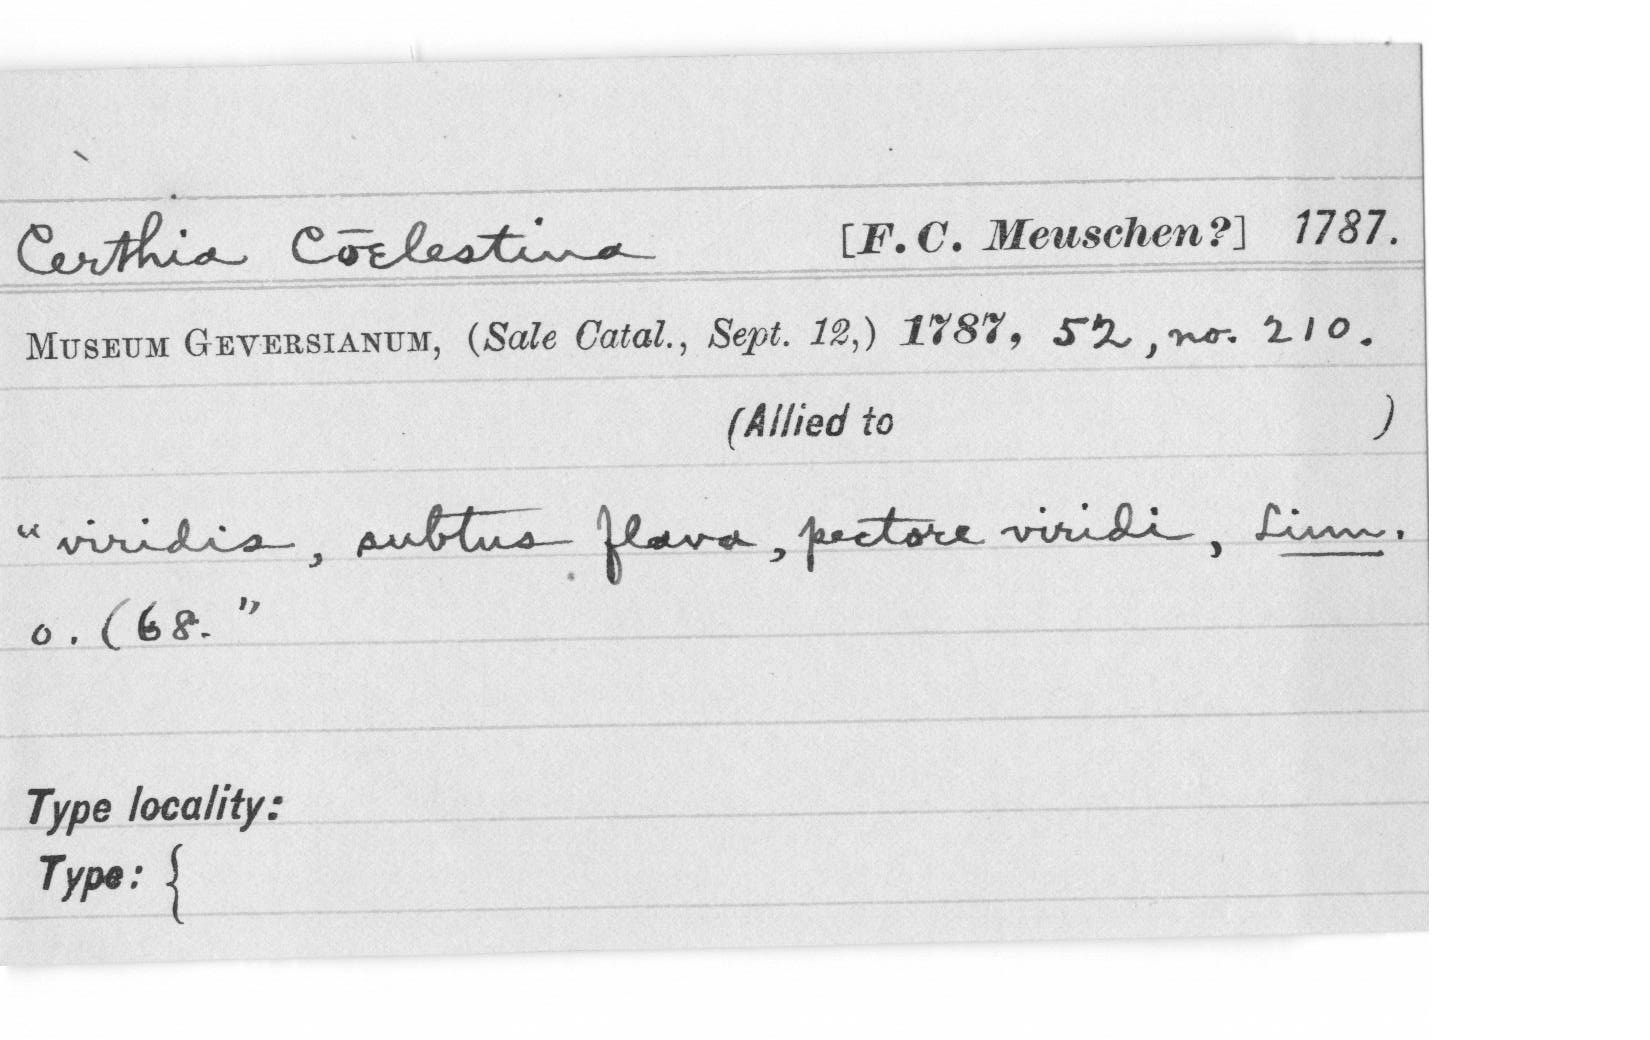 Certhia Cōelestina [F. C. Meuschen?] 1787.
MUSEUM GEVERSIANUM, (Sale Catal., Sept. 12,) 1787, 52, no. 210.
(Allied to )
"viridis, subtus flava, pectore viridi, Linn.
o. (68."
Type locality:
Type: {